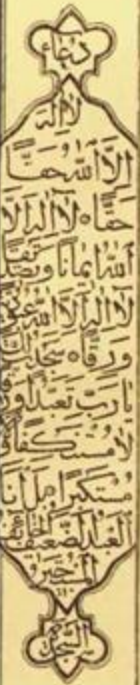 دعاء
لا اله
الا الله حقا
حقا ه لا اله الا
الله ايمانا وتصديقا
لا اله الا الله عبودية
ورقا ه سجدت لك
يا رب تعبدا ورقا
لا مستنكفا
مستكبرا بل انا
العبد الضعيف الخائف
المستجير
السجدة